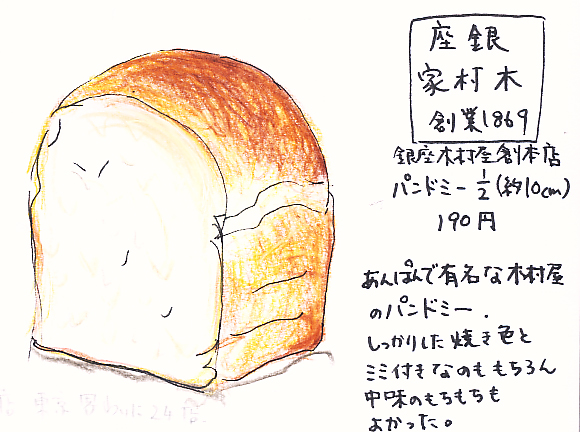 座銀
家村木
創業1869
銀座木村屋創本店
パンドミー 1/2 (約10cm)
190円
あんぱんで有名な木村屋
のパンドミー.
しっかりした焼き色と
ミミ付きなのももちろん
中味のもちもちも
よかった。